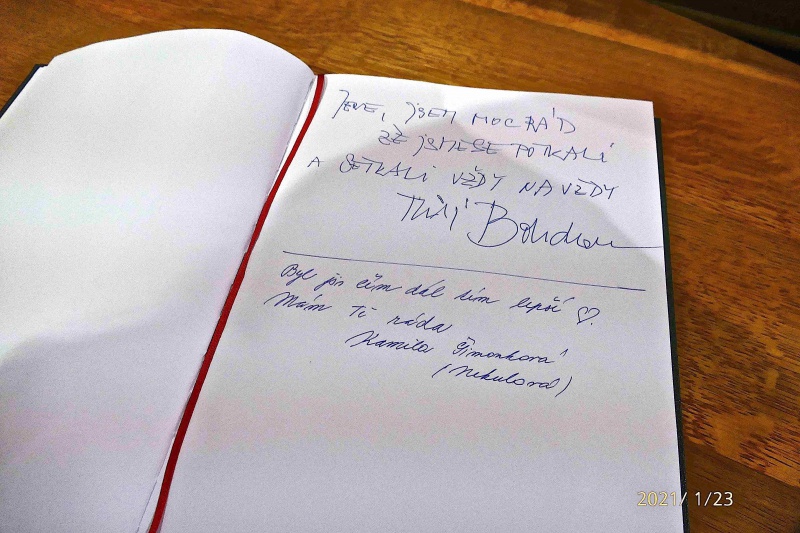 JENE, JSEM MOC RÁD
ŽE JSME SE POTKALI
A SETKALI VŽDY NAVŽDY
Tvůj Bohdan
Byl jsi čím dál tím lepší ♡.
Mám Tě ráda
Kamila Šimonková
(Nekulová)
2021/ 1/23